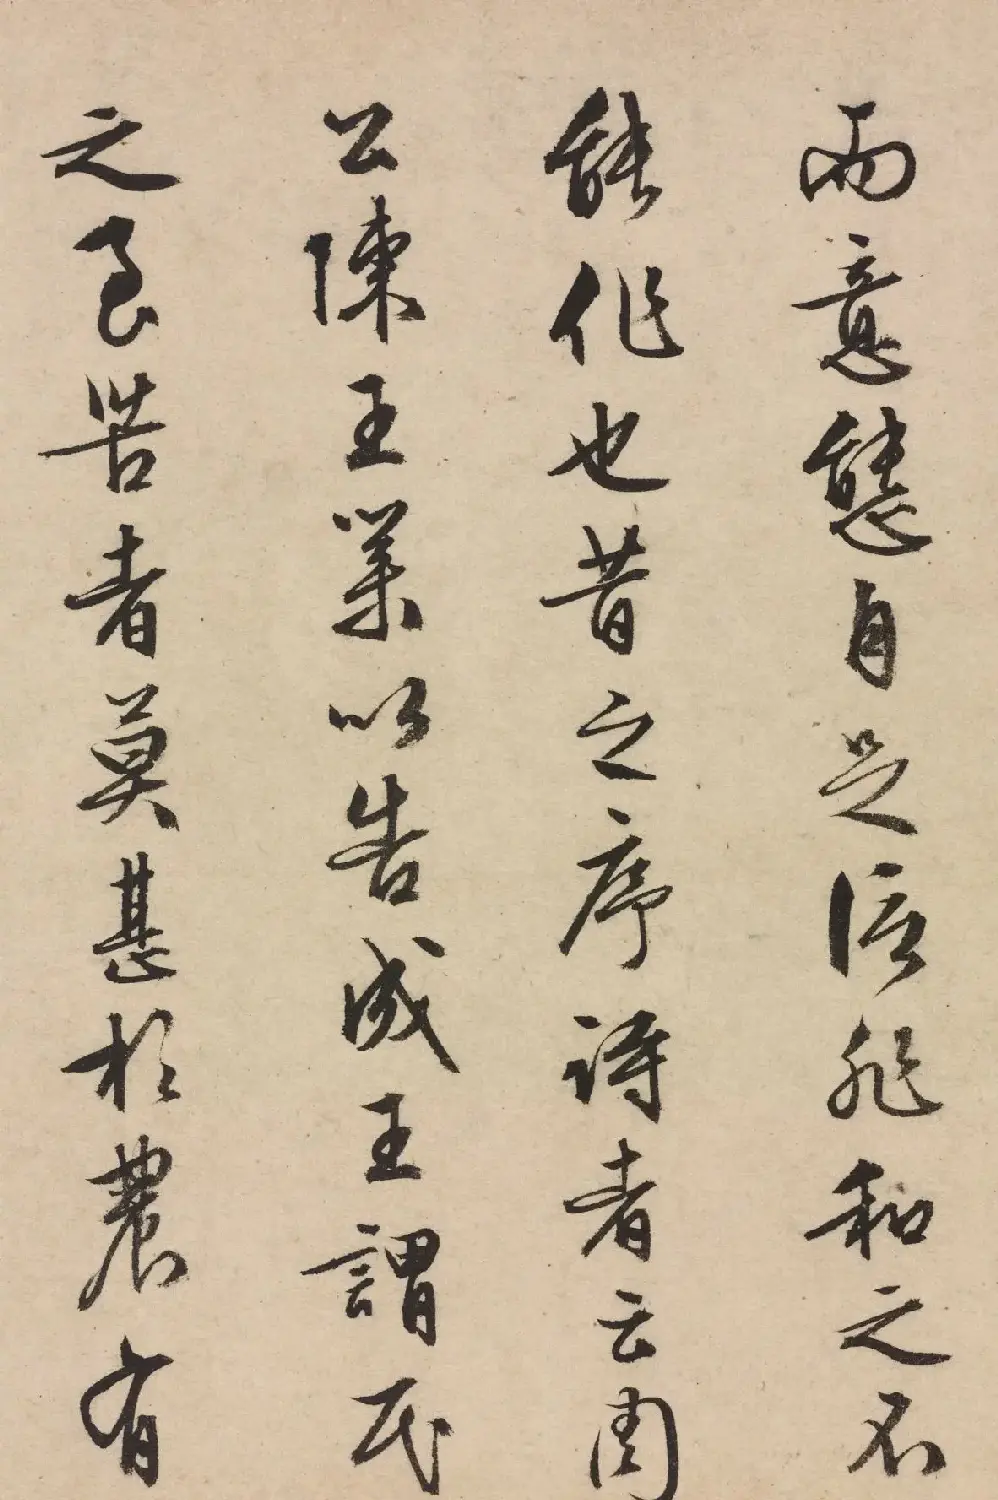 而意態自足信非和之不
能作也昔之序詩者云周
公陳王業以告成王謂民
之至苦者莫甚於農有